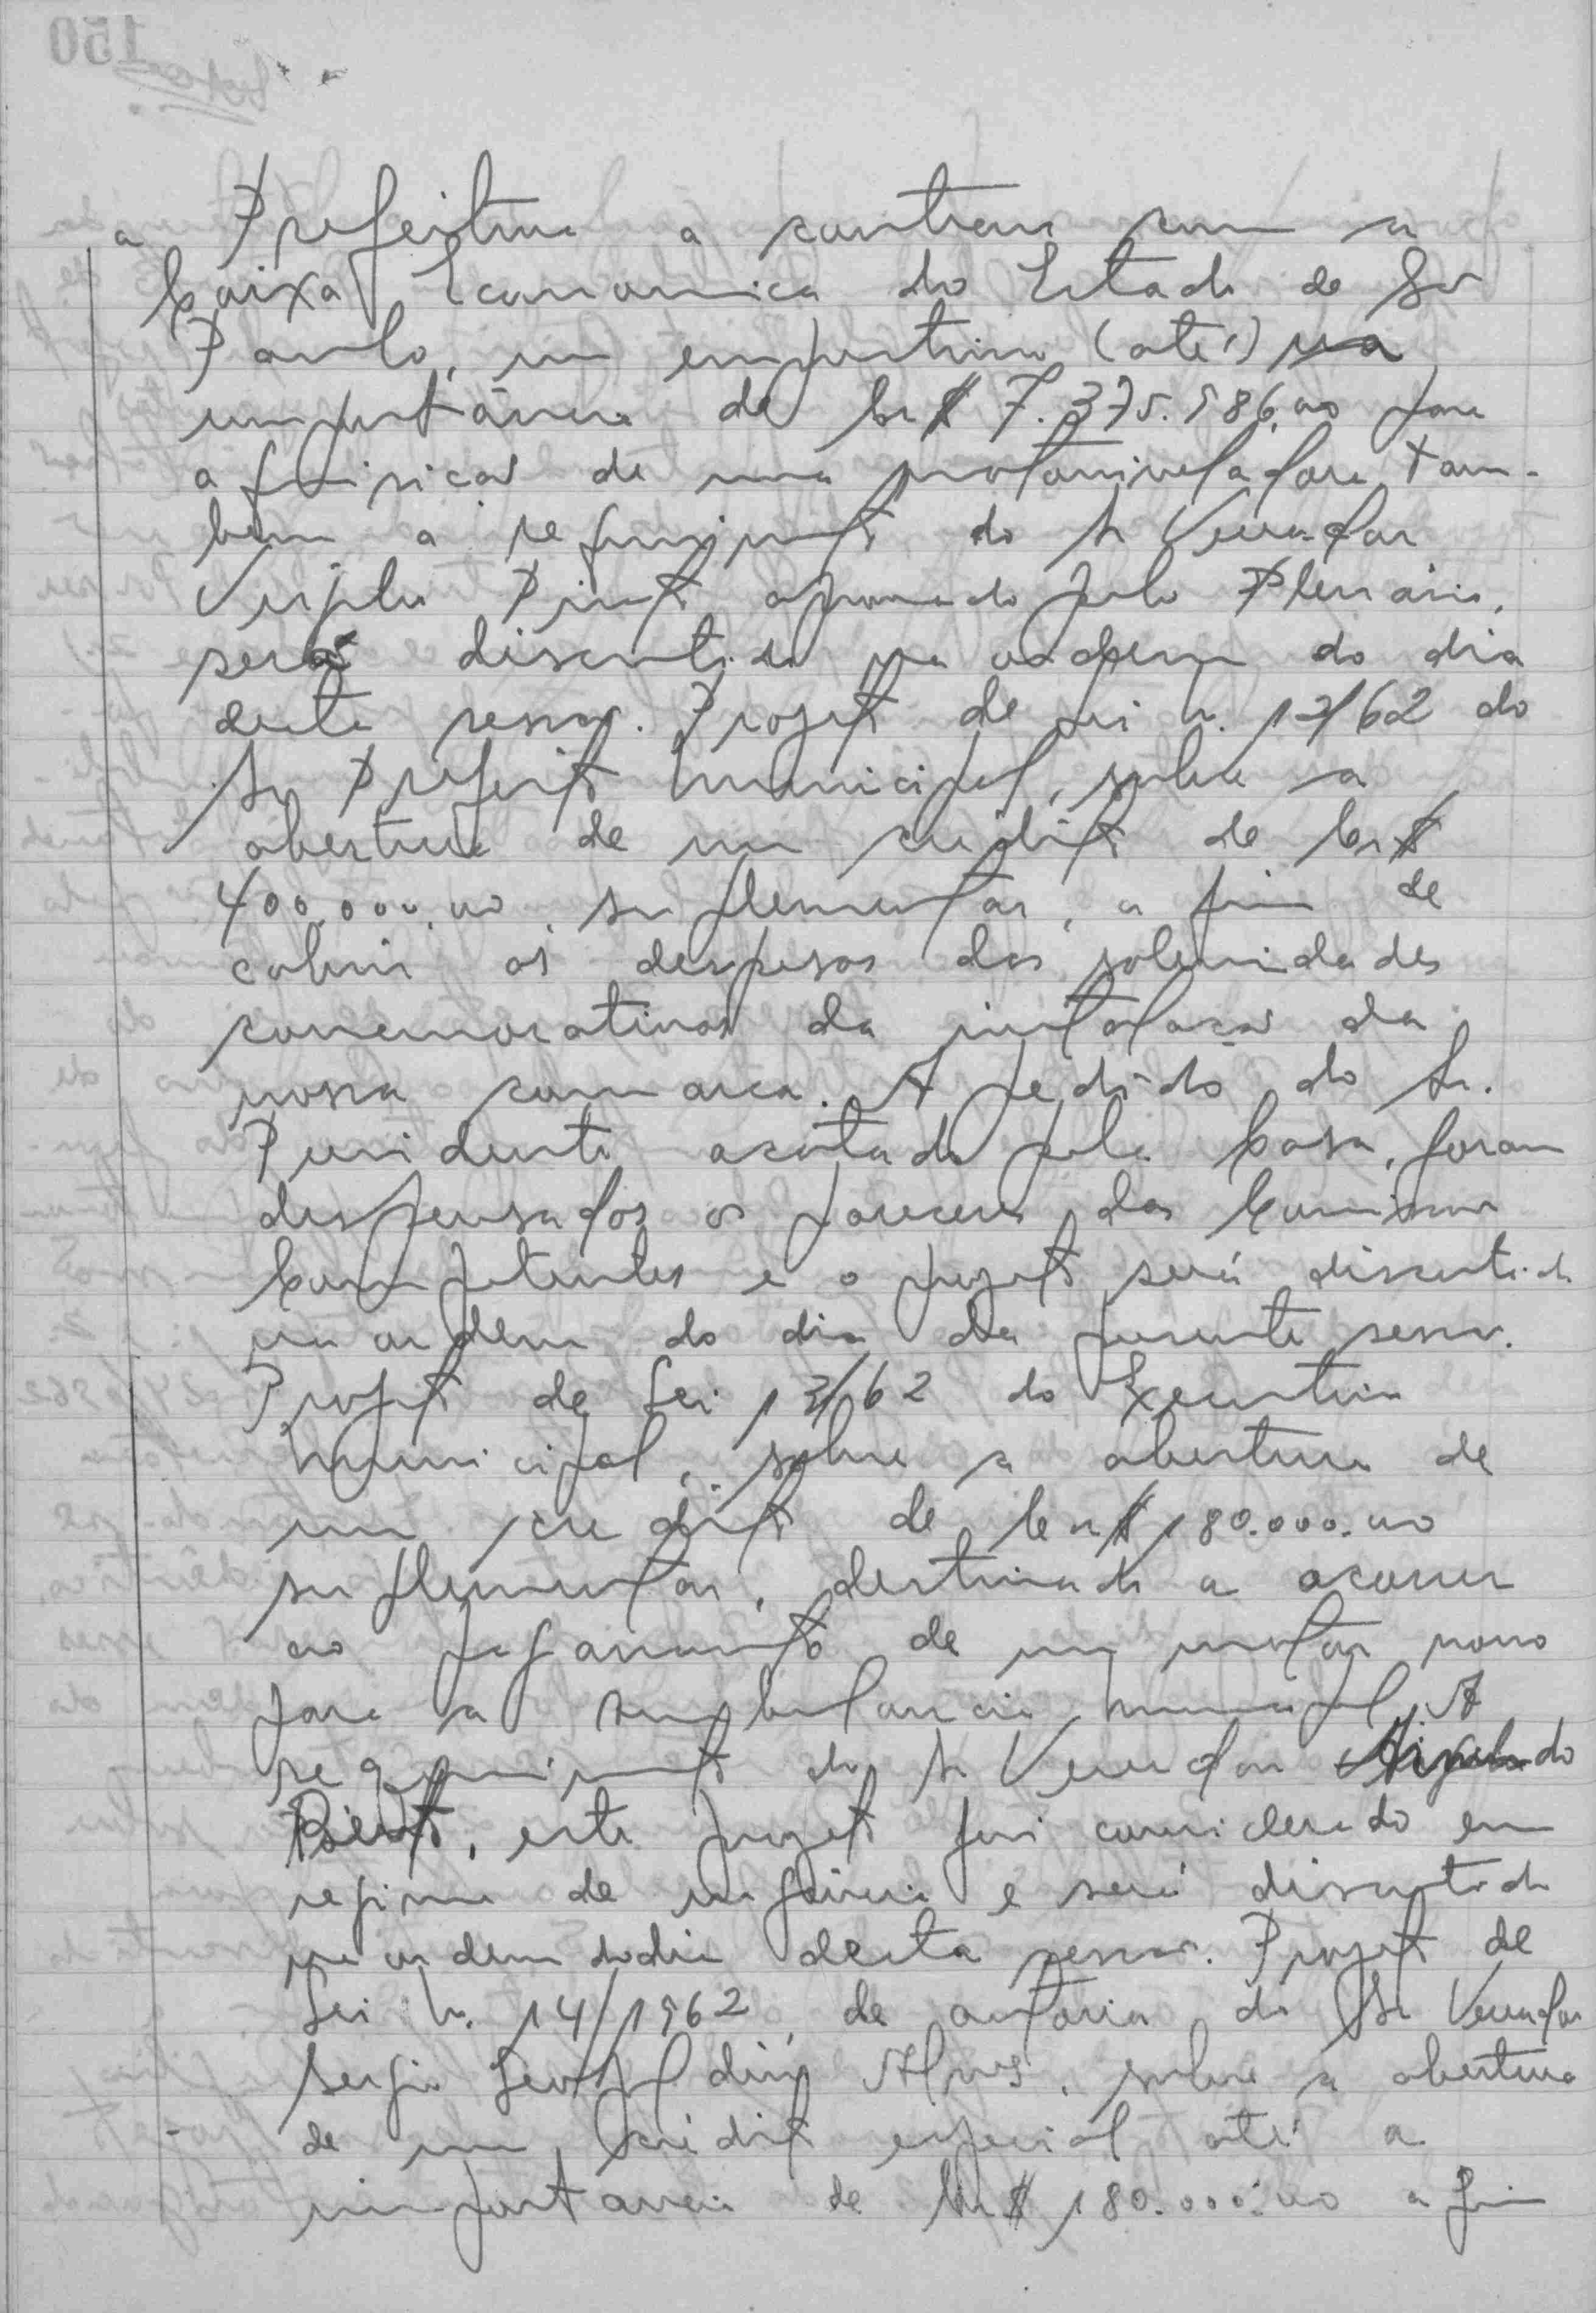 a Prefeitura a contrair com a
Caixa Economica do Estado de São
Paulo, um emprestimo (até) na
importância de Cr$ 7.375.986,00 para
aquisicão de uma motoniveladora. Tam-
bem a requerimento do Sr Vereador
Virgilio Pinto aprovado pelo Plenário,
será discutido na ordem do dia
desta sessão. Projeto de Lei n. 12/62 do
Sr Prefeito Municipal, sobre a
abertura de um crédito de Cr$
400.000,00, suplementar, a fim de
cobrir as despesas das solenidades
comemorativas da instalacão da
nossa comarca. A pedido do Sr.
Presidente acatado pela Casa, foram
dispensados os pareceres das Comissões
Competentes e o projeto será discutido
na ordem do dia da presente sessão.
Projeto de Lei 13/62 do Executivo
Municipal, sobre a abertura de
um credito de Cr$ 180.000,00
suplementar, destinado a ocorrer
ao pagamento de um motor novo
para a Ambulancia Municipal. A
requerimento do Sr Vereador
Pinto, este projeto foi considerado em
regime de urgência e será discutido
na ordem do dia desta sessão. Projeto de
Lei n. 14/1962, de autoria do Sr Vereador
Sergio Leopoldino Alves, sobre a abertura
de um crédito especial até a
importancia de Cr$ 180.000,00 a fim
150